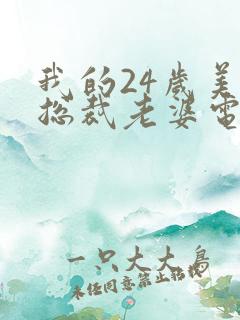 我的24岁美
总裁老婆电
一只大大鸟
未经同意禁止转载